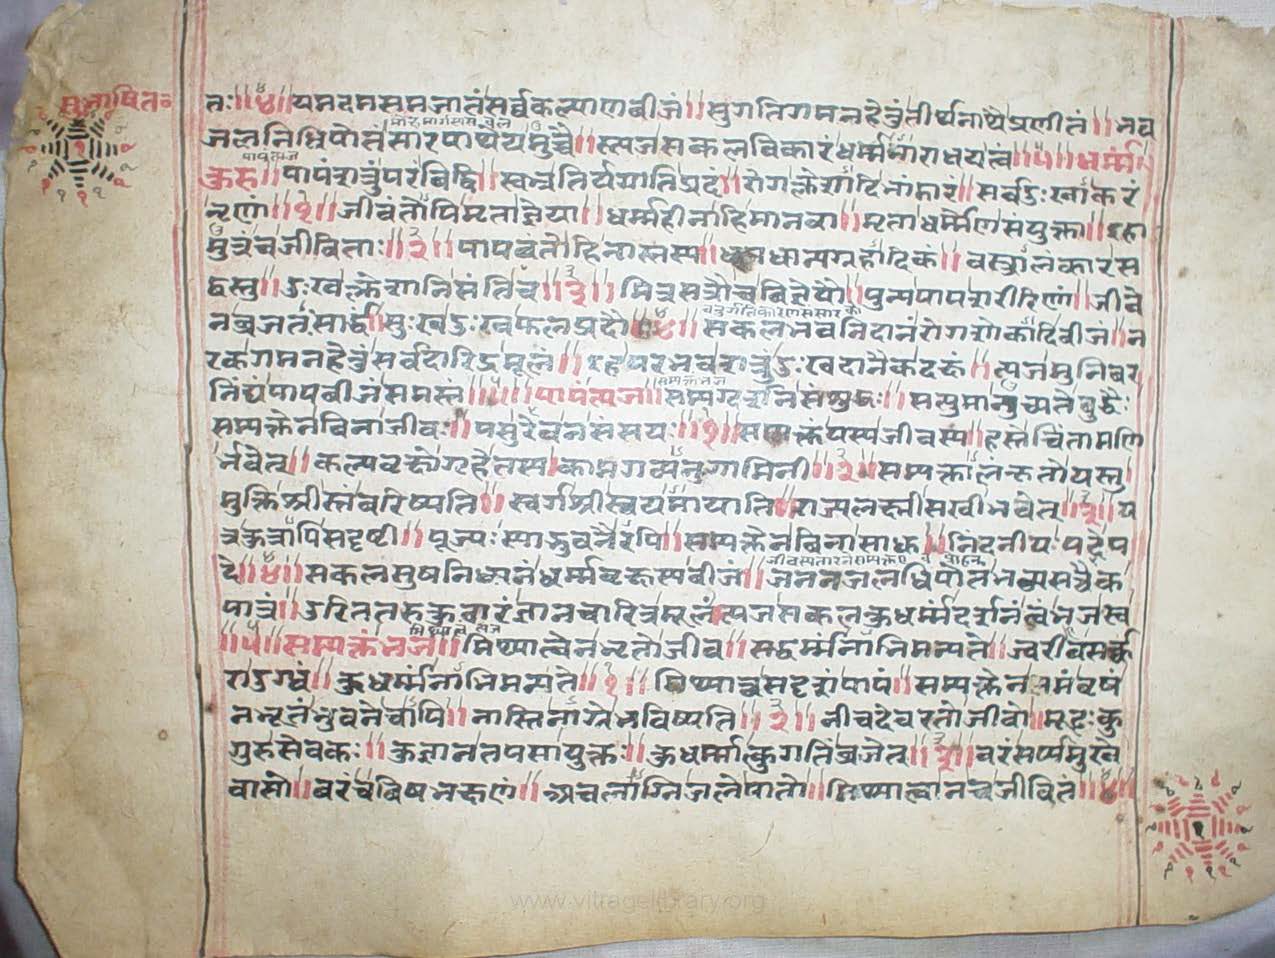 सुभाषित॰
तः॥४॥यमदमसमजातंसर्व्वकल्याणबीजं॥सुगतिगमनहेतुंतीर्थनाथैप्रणीतं॥भव
मोक्षमार्गसास
जलनिधिपोतंसारपाथेयमुच्चै॥स्त्यजसकलविकारंधर्ममाराधयत्वं॥५॥धर्म्मं
पापंत्यज
कुरु॥पापंशत्रुंपरंविद्धि॥स्वभ्रतिर्यग्गतिप्रदं॥रोगक्लेशादि सर्वदुःखाकरं
नृणां॥१॥जीवंतोपिमृताज्ञेया॥धर्म्महीनाहिमानवा॥मृताधर्म्मेणसंयुक्ता॥इहा
मुत्रंचजीविताः॥२॥पापवंतोहिनास्त्यस्य॥धनधान्यगृहादिकं॥वस्त्रालंकारस
द्वस्तु॥दुःखक्लेशानिसंतिच॥३॥मित्रसत्रौचविज्ञेयौ॥पुन्यपापशरीरिणां॥जीवे
चतुर्गतिकारणसंसार
नव्रजतंसार्द्धं॥सुःखदुःखफलप्रदौ॥४॥सकलभवनिदानंरोगशोकादिबीजं॥न
रकगमनहेतुंसर्वदारिद्रमूलं॥इहपरभवशत्रुंदुःखदानैकदक्षं॥त्यजमुनिवर
निंद्यंपापबीजंसमस्तं॥५॥पापंत्यज॥सम्यग्दर्शनसंशुद्धः॥सत्पुमानुच्यतेबुद्धैः
सम्यक्तेनविनाजीवः॥पसुरेवनसंसयः॥१॥सम्यक्तंयस्यजीवस्य॥हस्तेचिंतामणि
र्भवेत्॥कल्पवृक्षोगृहेतस्य।कामगव्यनुगामिनी॥२॥सम्यक्तालंकृतोयस्तु
मुक्तिश्रीस्तंवरिष्यति॥स्वर्गश्रीस्वयमायाति॥राज्यलक्ष्मीसखीभवेत्॥३॥य
त्रकुत्रापिसदृष्टी॥पूज्यःस्याद्भुवनैरपि॥सम्यक्तेनविनासाधु॥निंदनीयःपदेप
दे॥४॥सकलसुषनिधानंधर्म्मवृक्षस्यबीजं॥जननजलधिपोतंभव्यसत्वैक
पात्रं॥दुरिततरुकुठारंज्ञानचारित्रमूलंत्यजसकलकुधर्म्मंदर्शनंत्वंभजस्व
मिथ्यात्वंत्यज
॥५॥सम्यक्तंभज॥मिथ्यात्वेनवृतोजीव॥सद्धर्म्मंनाभिमन्यते॥ज्वरीवसर्क्क
रादुग्धं॥कुधर्म्मंनाभिमन्यते॥१॥मिथ्यात्वसदृशंपापं॥सम्यक्तेनसमंवृषं
नभूतंभुवनेचापि॥नास्तिनाग्रेभविष्यति॥२॥नीचदेवरतोजीवो॥मूढःकु
गुरुसेवकः॥कुज्ञानतपसायुक्तः॥कुधर्म्मात्कुगतिंव्रजेत्॥३॥वरंसर्प्पमुखे
वासो॥वरंचविषभक्षणं॥अचलाग्निजलेपातो॥मिथ्यात्वानचजीवितं॥४॥
www.vitragelibrary.org